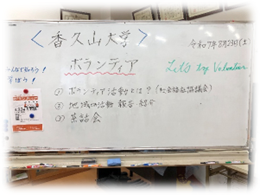 ＜香久山大学＞
令和7年2月2日(土)
ボランティア
Let's try Volunteer
① ボランティア活動とは？(社会福祉協議会)
② 地域の活動 報告 紹介
③ 茶話会